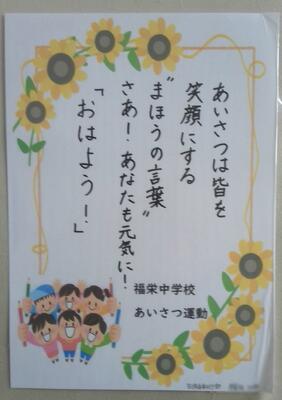 あいさつは皆を
笑顔にする
“まほうの言葉”
さあー、あなたも元気に！
「おはよう！」
福栄中学校
あいさつ運動